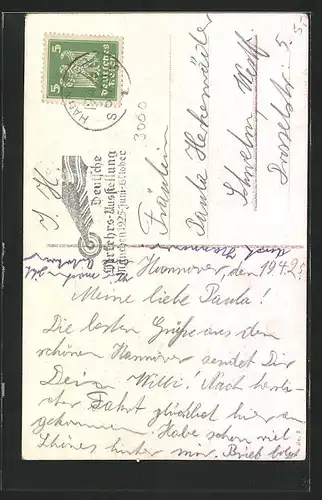 5
5
Deutsches Reich
3000
Deutsche
Verkehrs-Ausstellung
München 1925 Juni-Oktober
Fräulein
Paula
Schwelm Westf.
5.
Hannover, den 19.4.25
Meine liebe Paula!
Die besten Grüße aus dem
schönen Hannover sendet Dir
Dein Willi! Nach herrli-
cher Fahrt glücklich hier an-
gekommen. Habe schon viel
Schönes hinter mir. Brief folgt